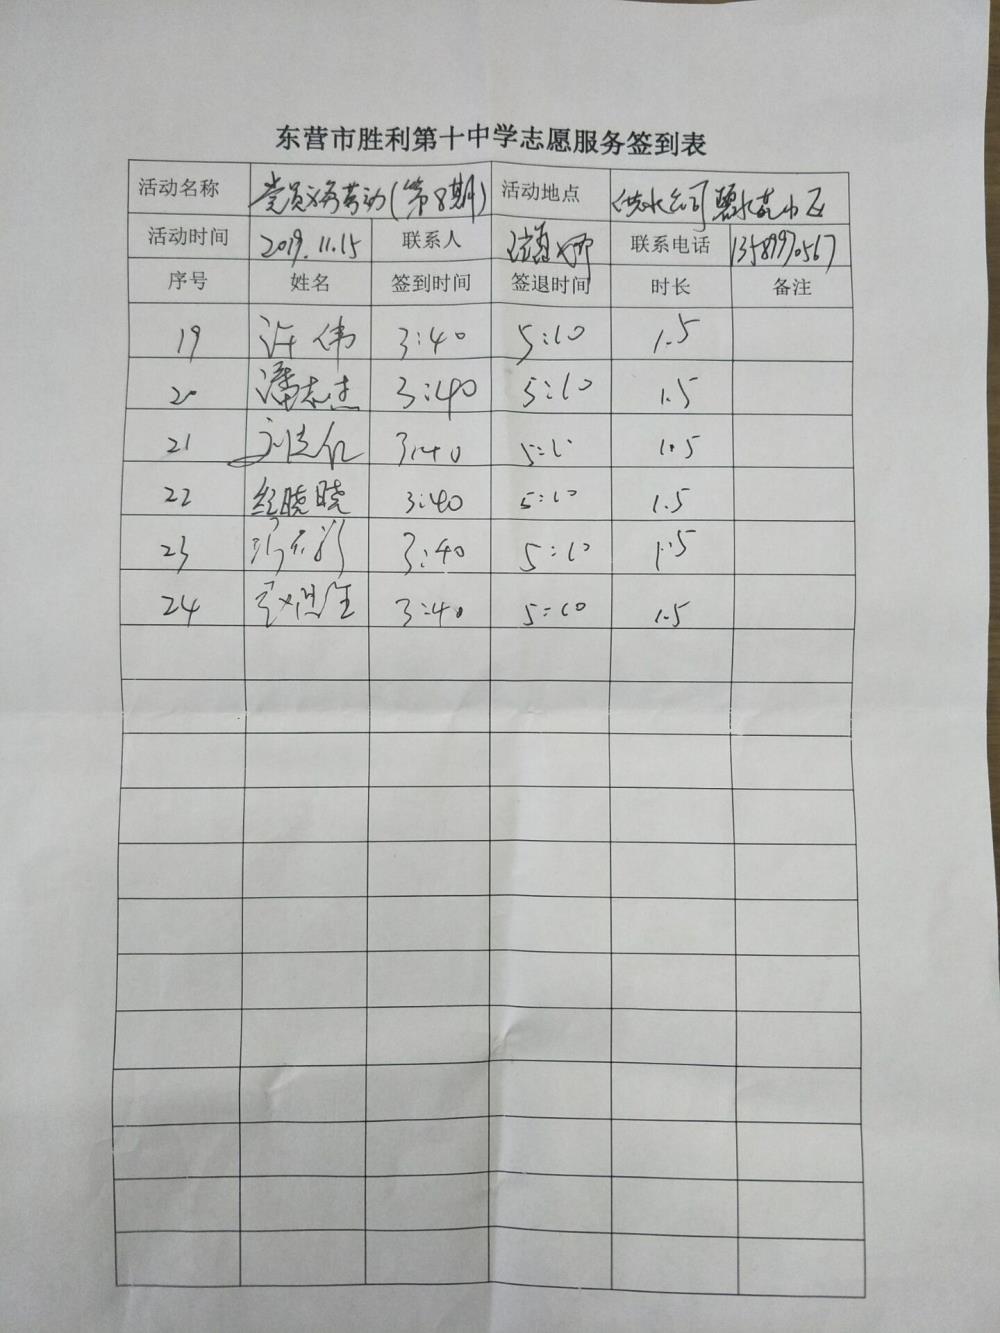 东营市胜利第十中学志愿服务签到表
活动名称 党员义务劳动(第8期) 活动地点 供水公司碧水苑小区
活动时间 2019.11.15 联系人 联系电话 13589970567
序号 姓名 签到时间 签退时间 时长 备注
19 许伟 3:40 5:10 1.5
20 潘志杰 3:40 5:10 1.5
21 3:40 5:10 1.5
22 纪晓晓 3:40 5:10 1.5
23 3:40 5:10 1.5
24 3:40 5:10 1.5